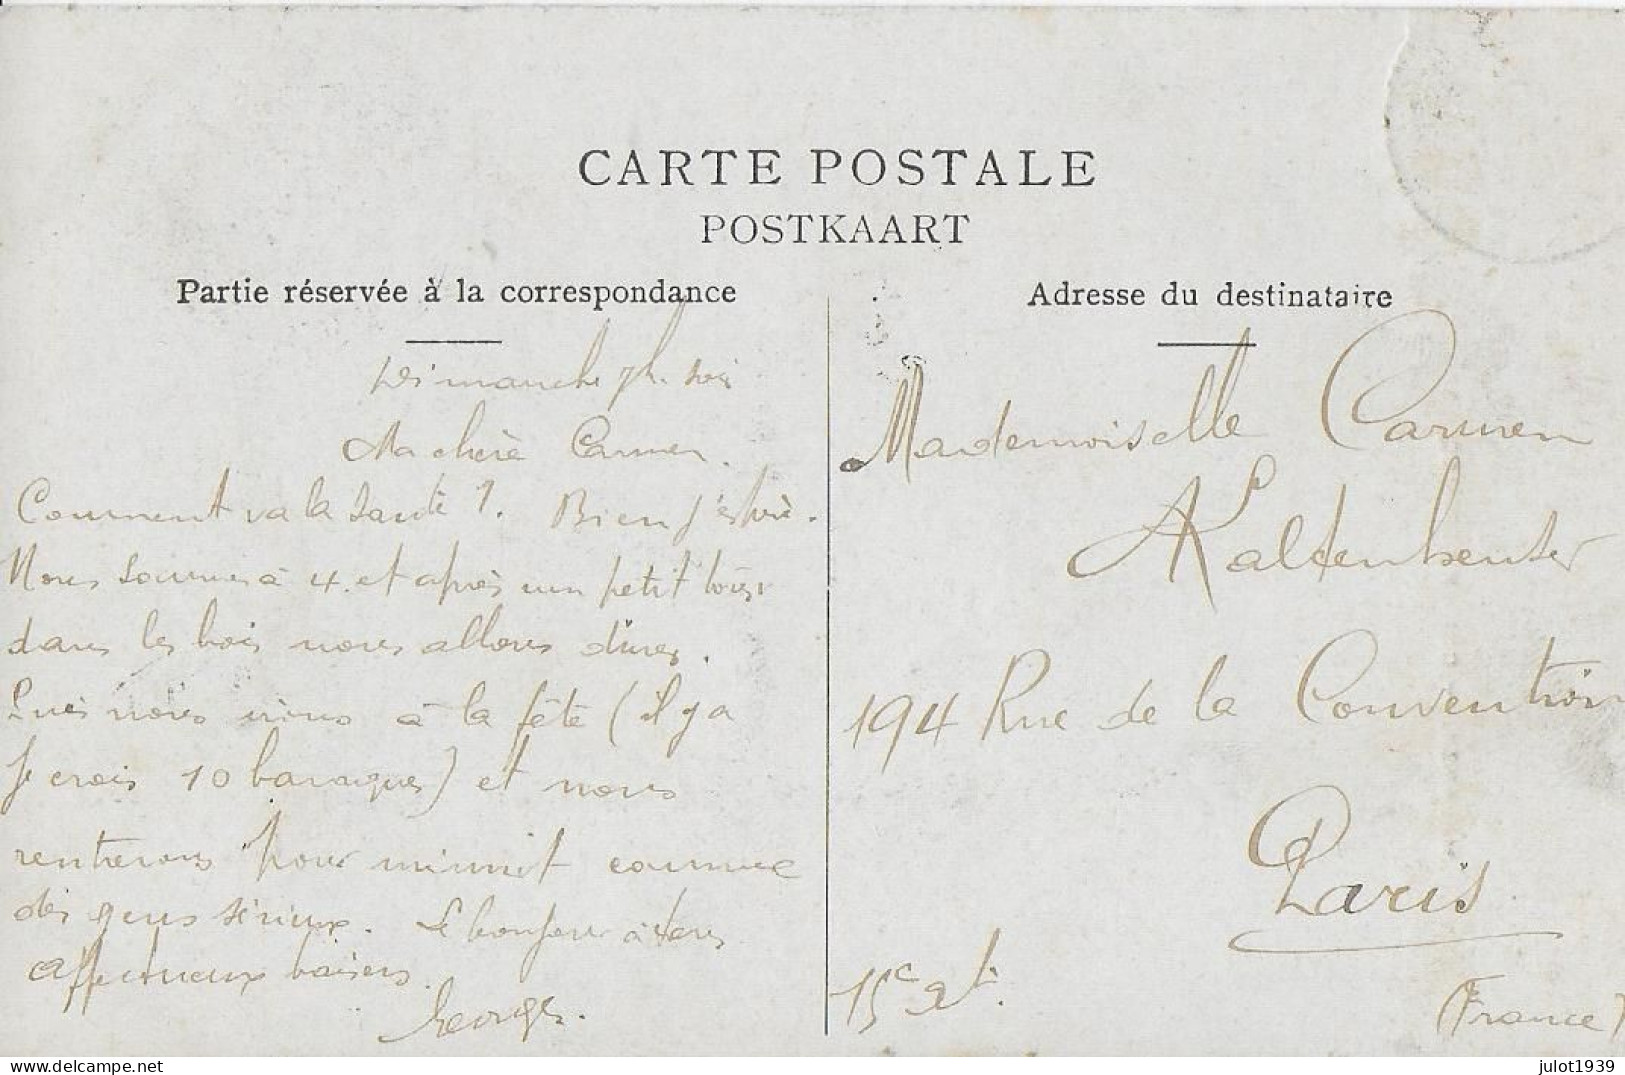 CARTE POSTALE
POSTKAART
Partie réservée à la correspondance
Dimanche 7h. soir
Ma chère Carmen.
Comment va la santé ?. Bien j'espère.
Nous sommes à 4. et après un petit tour
dans les bois nous allons dîner.
Puis nous irons à la fête (il y a
je crois 10 baraques) et nous
rentrerons pour minuit comme
des gens sérieux. Le bonjour à tous
Affectueux baisers.
Georges.
Adresse du destinataire
Mademoiselle Carmen
194 Rue de la Convention
Paris
15e At.
(France)
julot1939